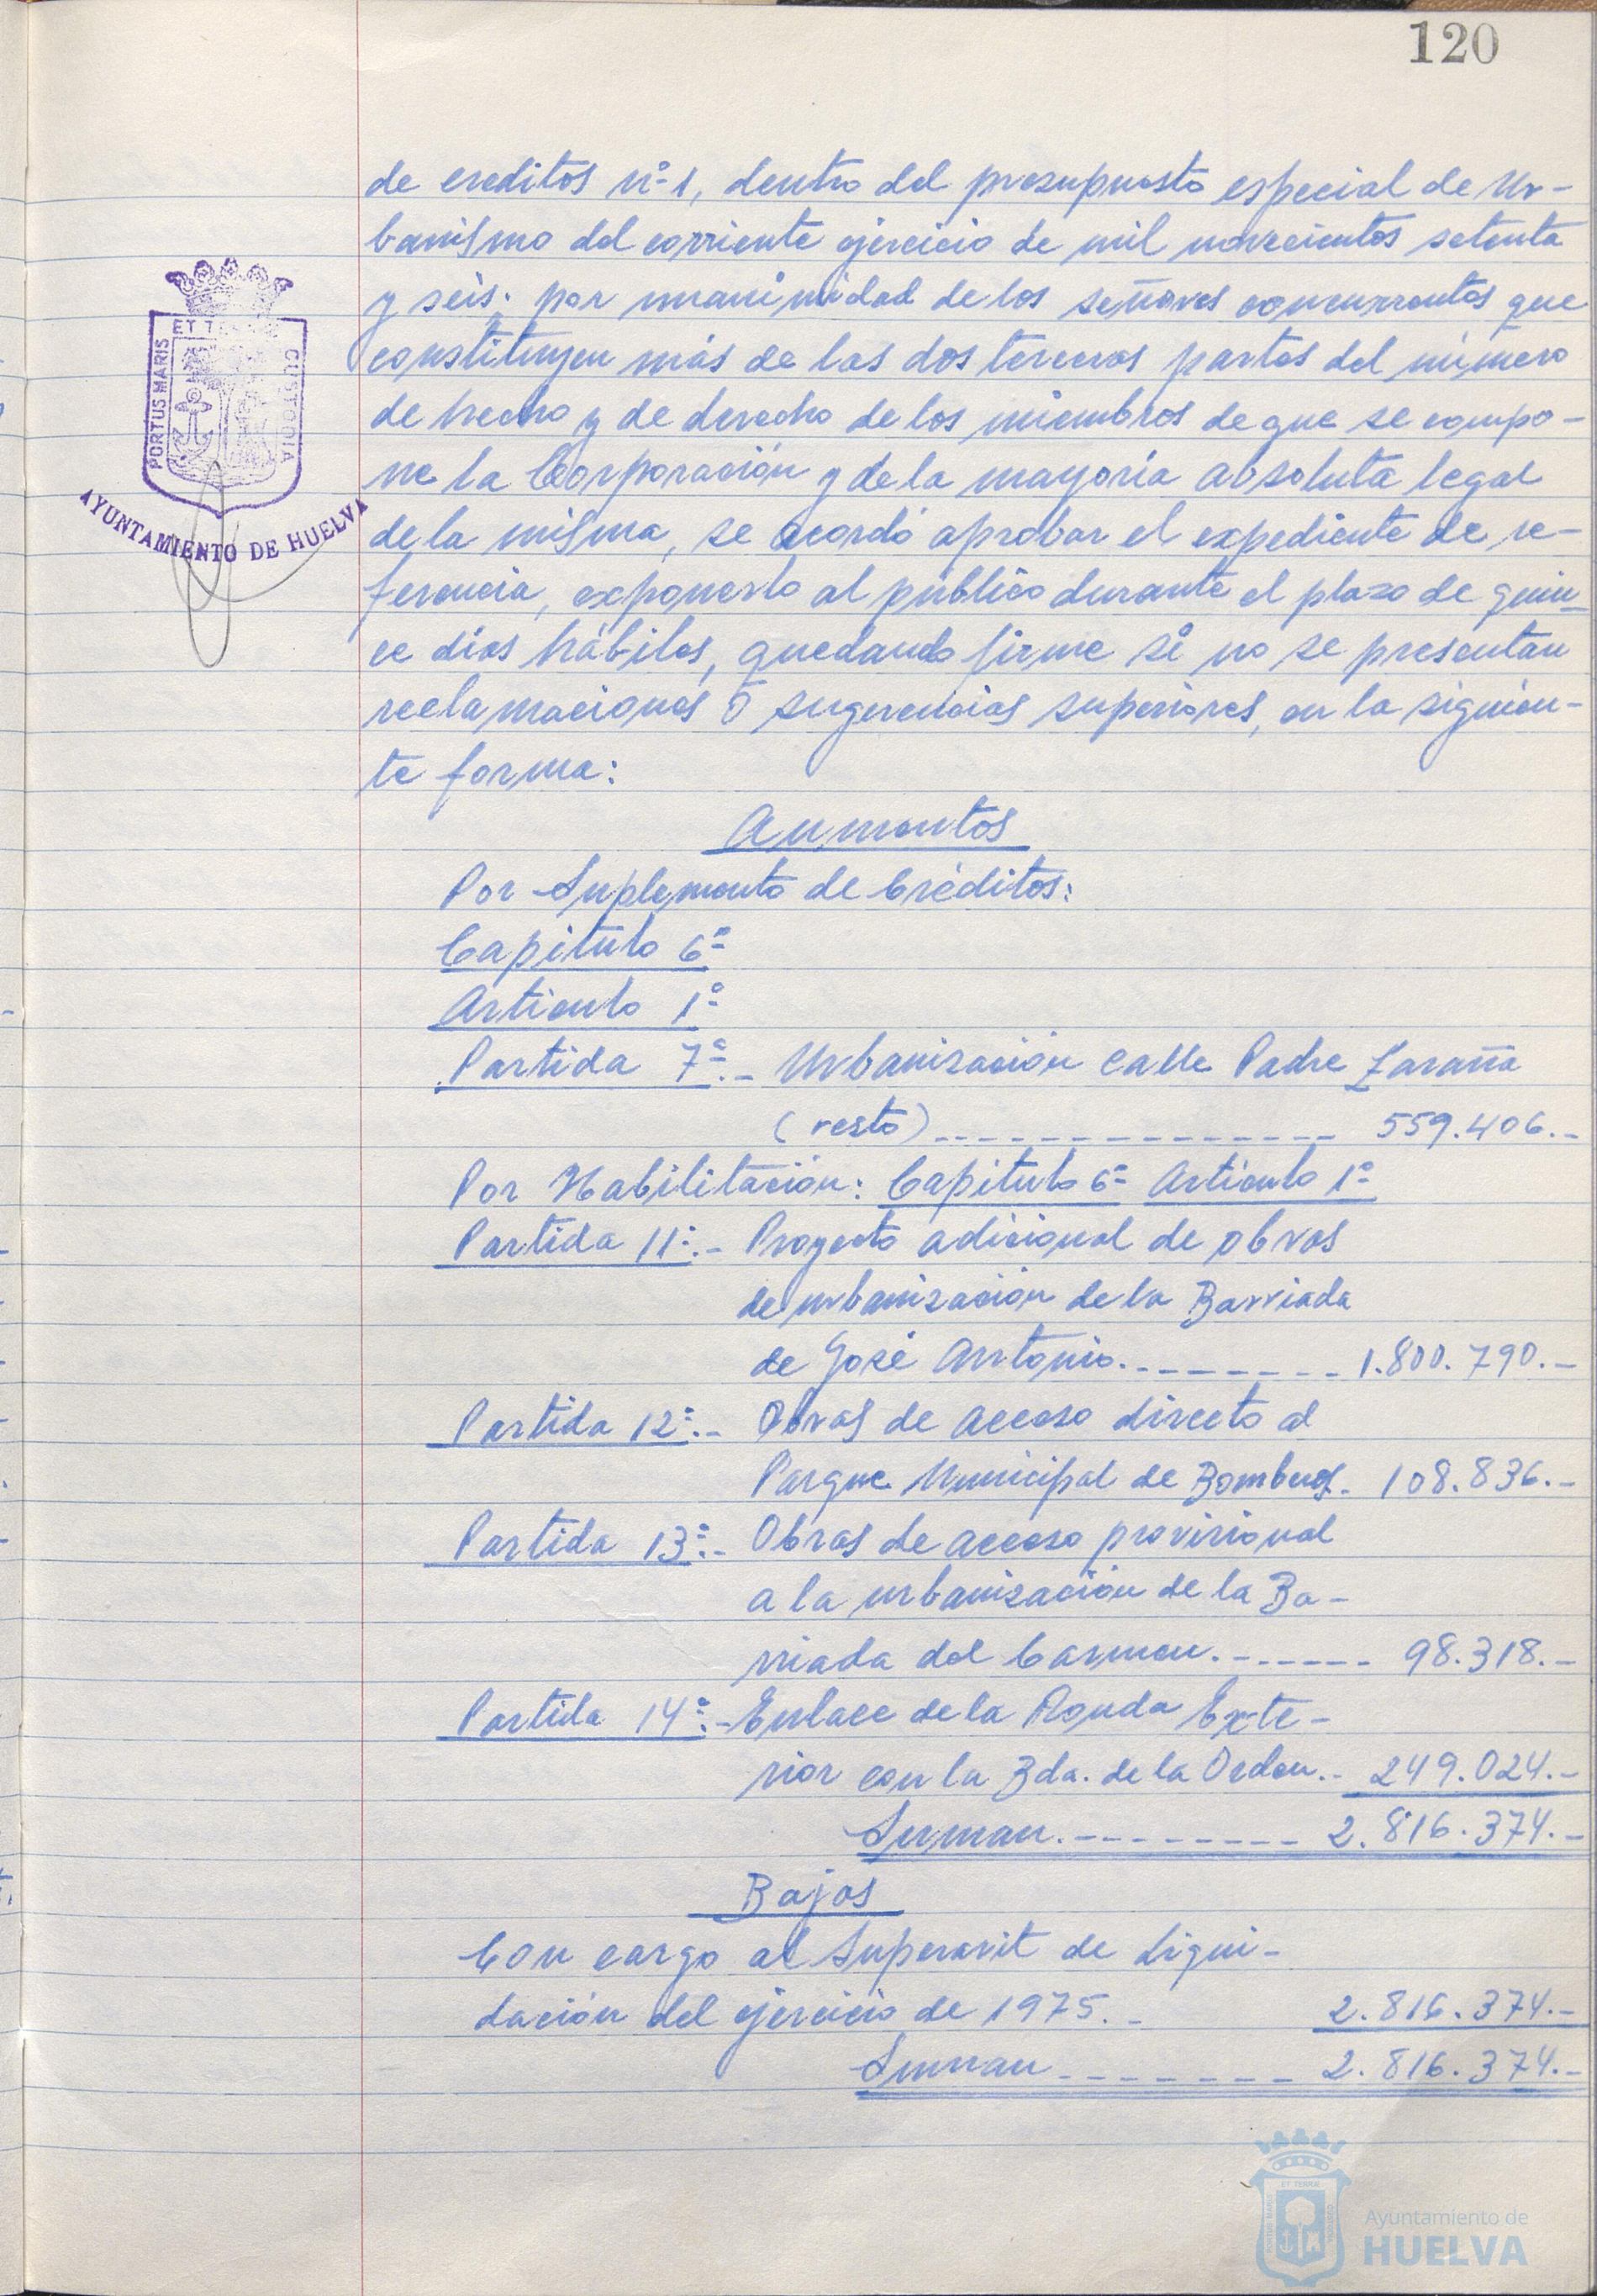 120
de creditos nº 1, dentro del presupuesto especial de Ur-
banismo del corriente ejercicio de mil novecientos setenta
y seis; por unanimidad de los señores concurrentes que
constituyen más de las dos terceras partes del número
de hecho y de derecho de los miembros de que se compo-
ne la Corporación y de la mayoría absoluta legal
de la misma, se acordó aprobar el expediente de re-
ferencia, exponerlo al público durante el plazo de quin-
ce días hábiles, quedando firme si no se presentan
reclamaciones o sugerencias superiores, en la siguien-
te forma:
Aumentos
Por Suplemento de Créditos:
Capítulo 6º
Artículo 1º
Partida 7ª.- Urbanización calle Padre Laraña
(resto) 559.406.-
Por Habilitación: Capítulo 6º Artículo 1º
Partida 11ª.- Proyecto adicional de obras
de urbanización de la Barriada
de José Antonio. 1.800.790.-
Partida 12ª.- Obras de acceso directo al
Parque Municipal de Bomberos.- 108.836.-
Partida 13ª.- Obras de acceso provisional
a la urbanización de la Ba-
rriada del Carmen. 98.318.-
Partida 14ª.- Enlace de la Ronda Exte-
rior con la Bda. de la Orden.- 249.024.-
Suman. 2.816.374.-
Bajas
Con cargo al Superavit de Liqui-
dación del ejercicio de 1975.- 2.816.374.-
Suman 2.816.374.-
PORTUS MARIS
ET T
CUSTODIA
AYUNTAMIENTO DE HUELVA
Ayuntamiento de
HUELVA